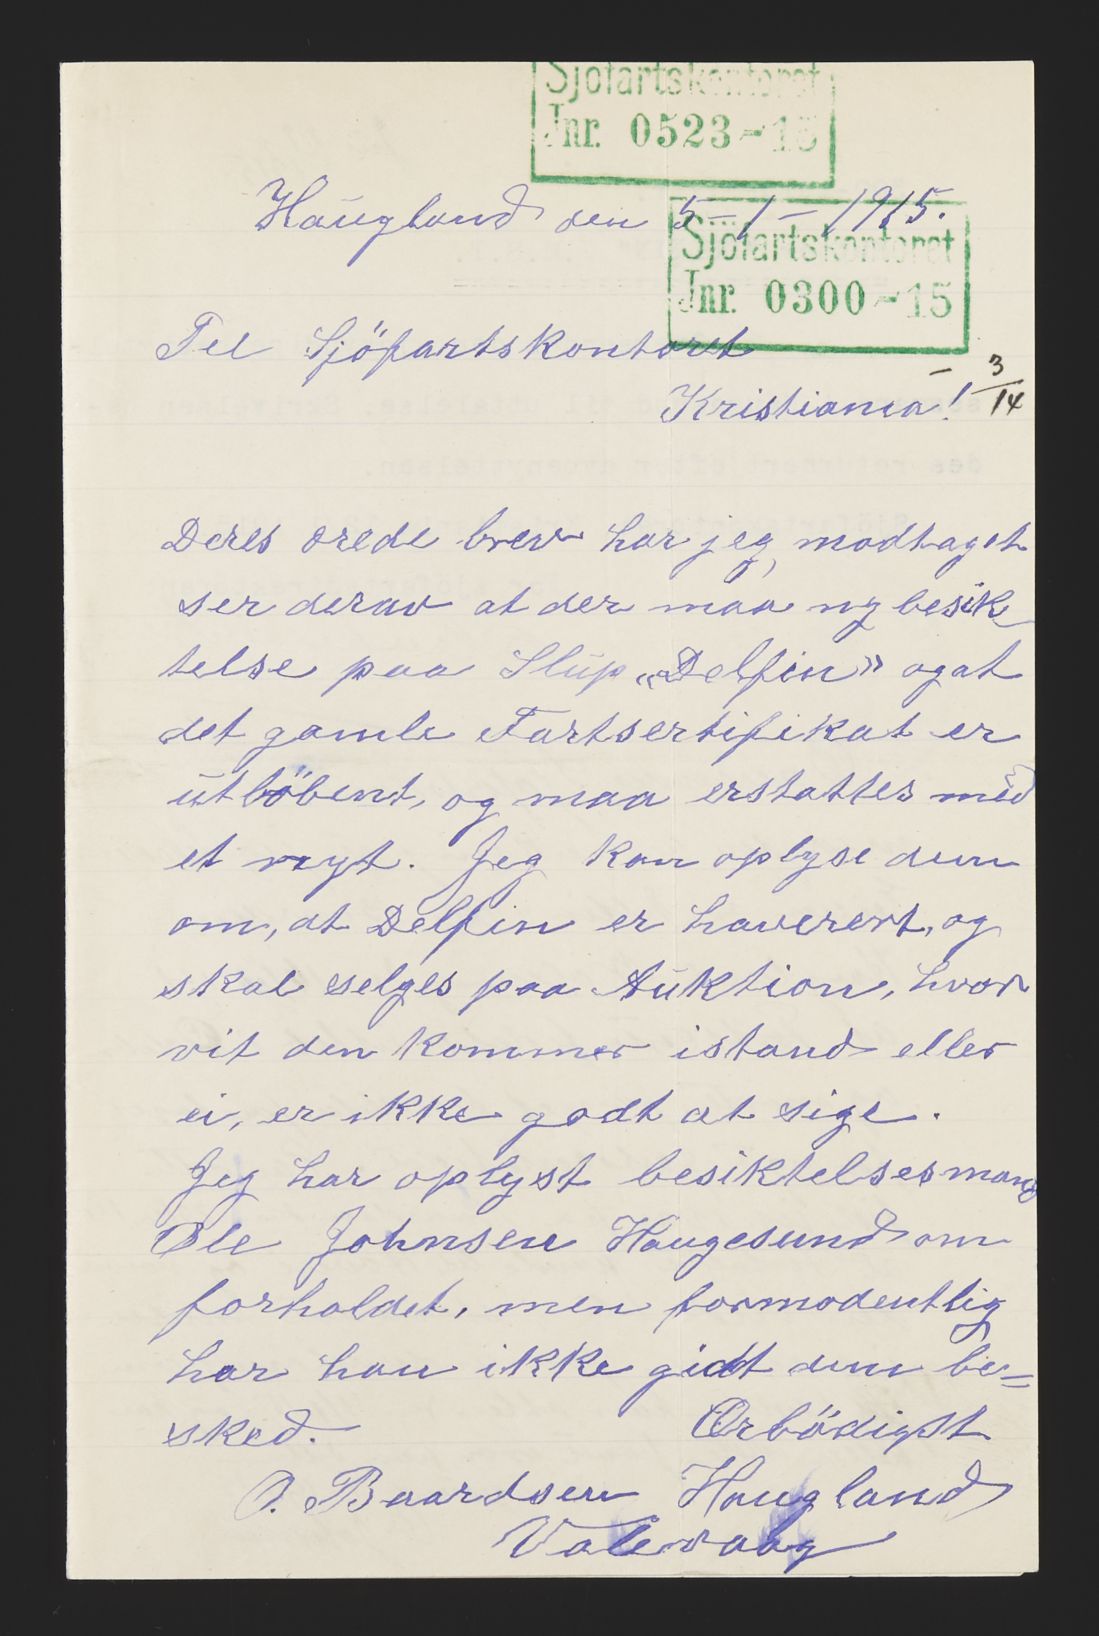 Sjøfartskontoret
Jnr. 0523-15
Haugland den 5-1-1915.
Sjöfartskontoret
Jnr. 0300-15
Tel Sjöfartskontoret
Kristiania! - 3/14
Deres ærede brev har jeg modtaget
ser derav at der maa ny besik
telse paa Slup „Delfin" og at
det gamle Fartsertifikat er
utlöbent, og maa erstattes med
et nyt. Jeg kan oplyse dem
om, at Delfin er havarert, og
skal selges paa Auktion, hvor
vit den kommer istand eller
ei, er ikke godt at sige.
Jeg har oplyst besiktelsesmand
Ole Johnsen Haugesund om
forholdet, men formodentlig
har han ikke gidt dem be=
sked. Ærbödigst
O. Baardsen Haugland
Valevaag